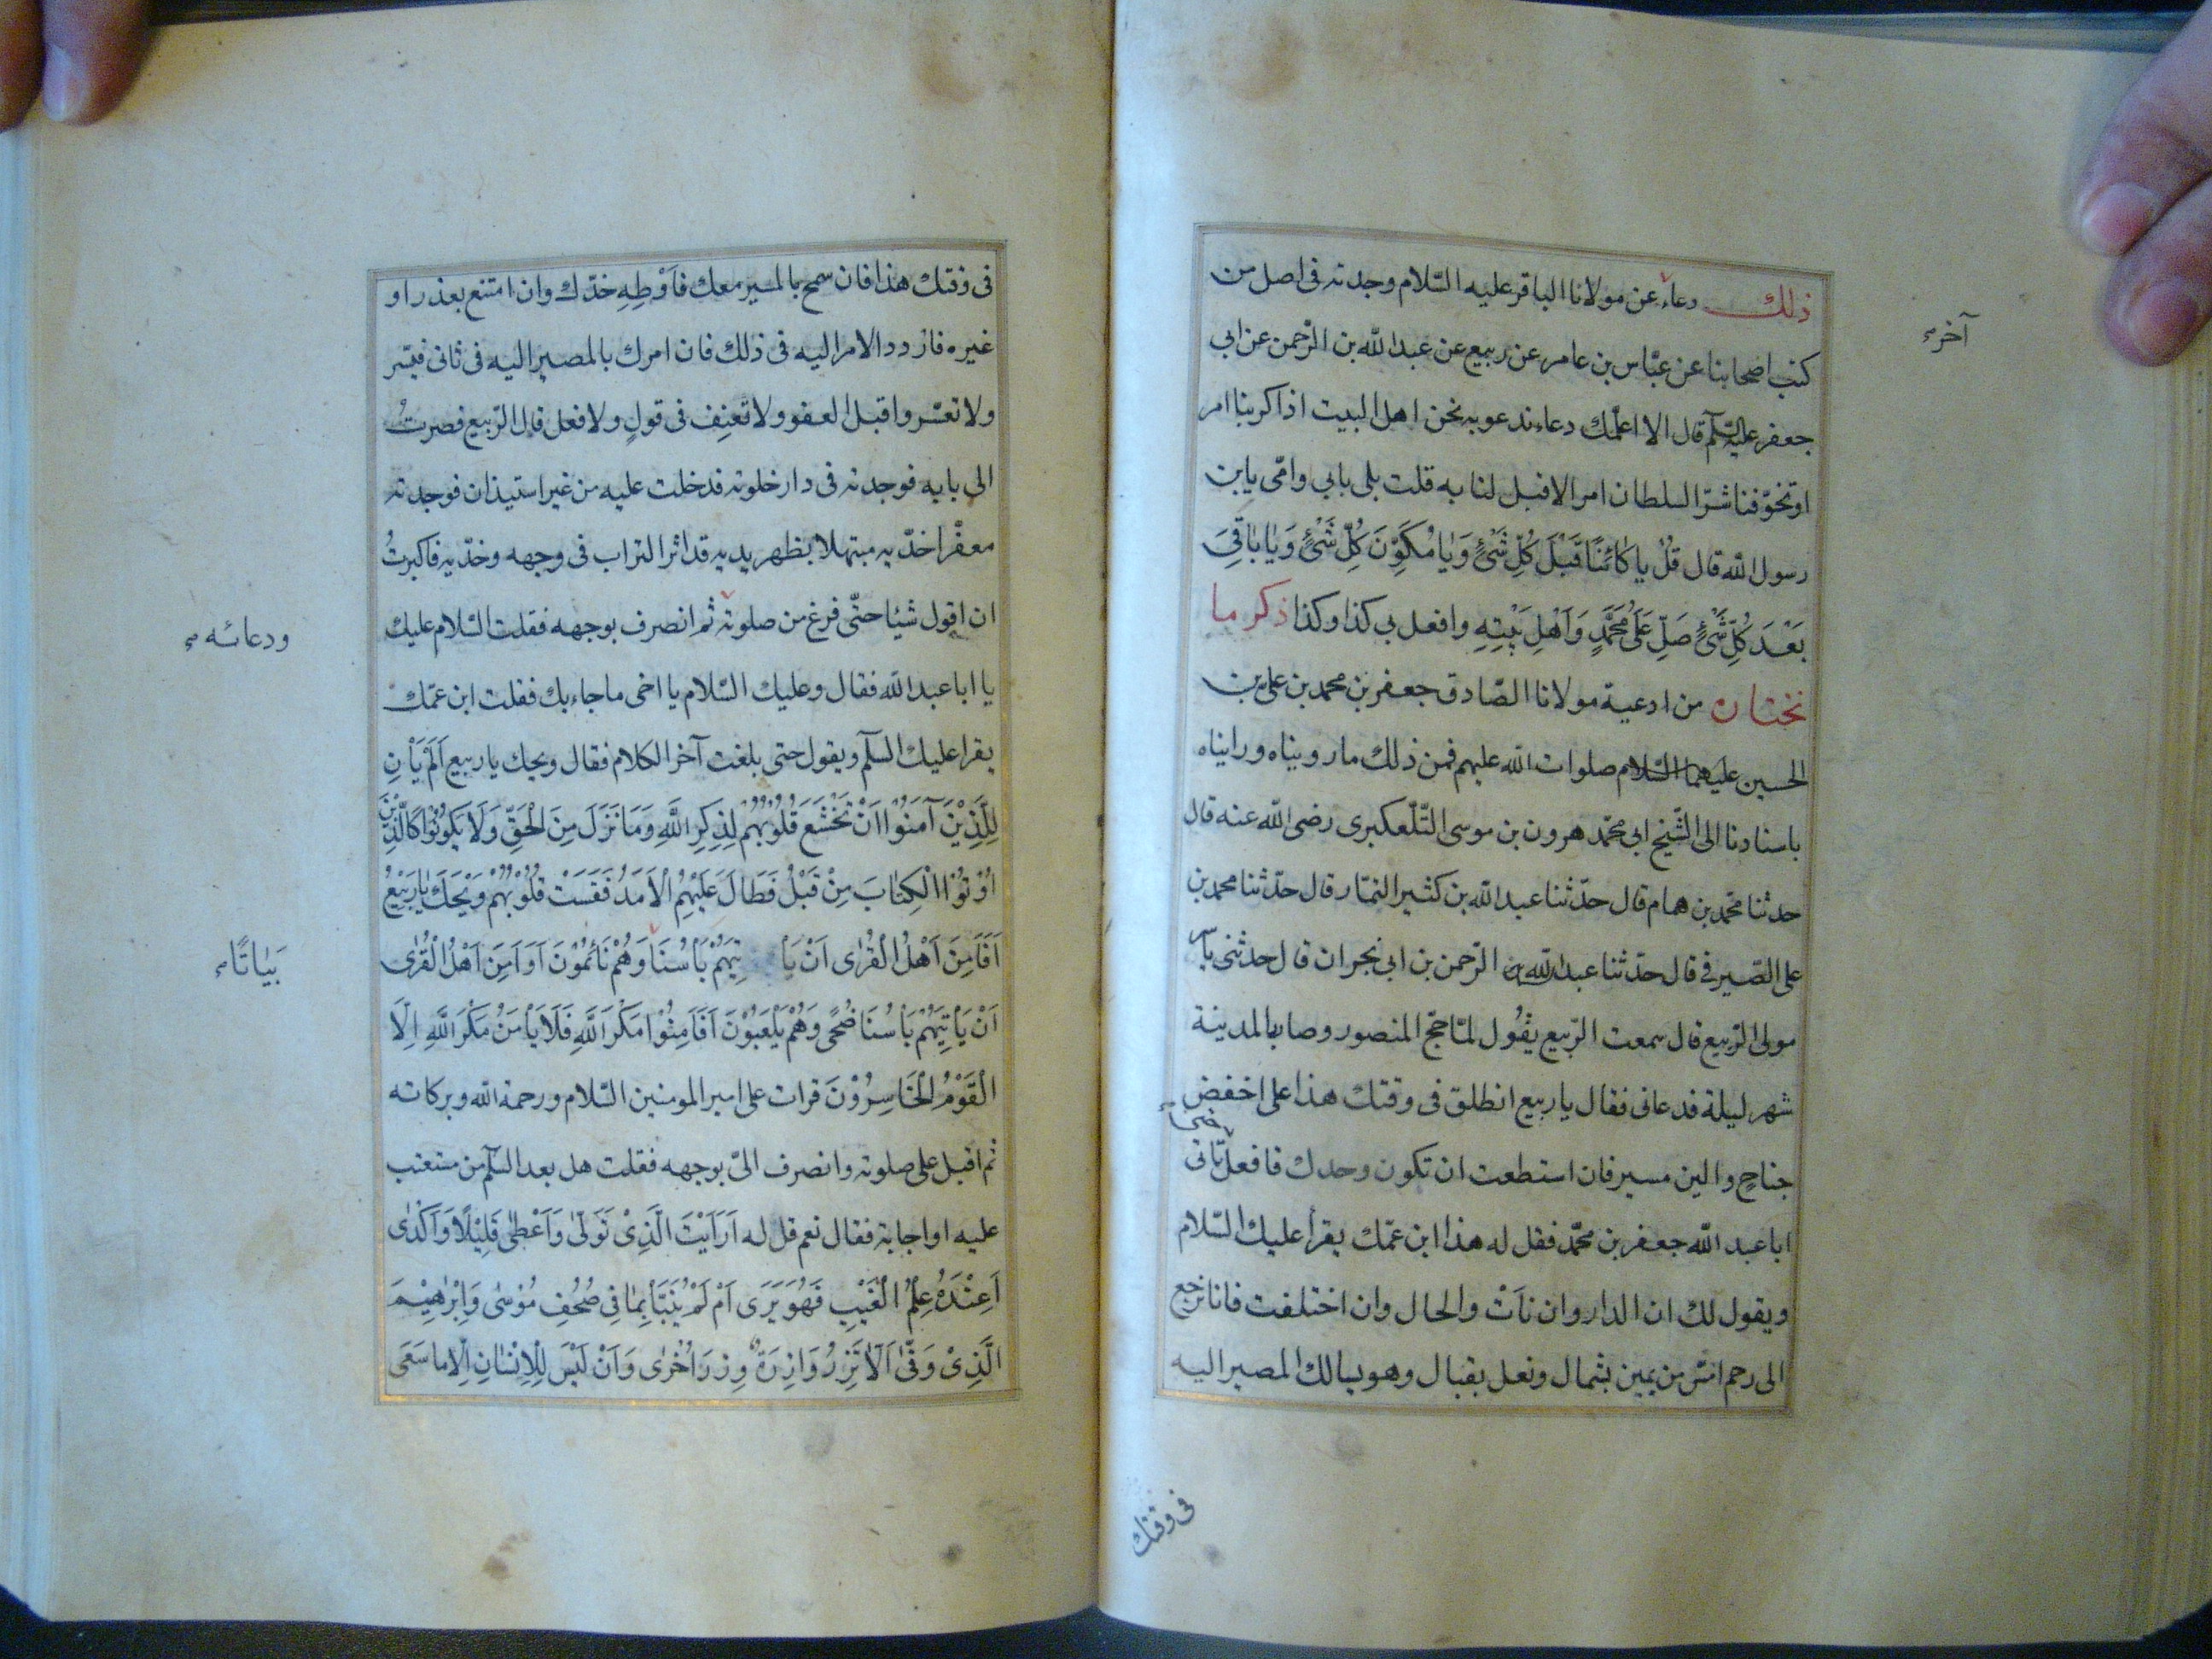 ذلك دعاء عن مولانا الباقر عليه السّلام وجدته فى اصل من
آخر
كتب اصحابنا عن عبّاس بن عامر عن ربيع عن عبدالله بن الرّحمن عن ابى
جعفر عليه السّلم قال الا اعلّمك دعاء ندعو به نحن اهل البيت اذا كربنا امر
او تخوّفنا شرّ السلطان امر الا قبل لنا به قلت بلى بابى وامّى يابن
رسول الله قال قُلْ يا كٰائِنًا قَبْلَ كُلِّ شَىْءٍ وَيٰا مُكَوِّنَ كُلِّ شَىْءٍ وَيٰا بٰاقِىَ
بَعْدَ كُلِّ شَىْءٍ صَلِّ عَلىٰ مُحَمَّدٍ وَاَهْلِ بَيْتِهِ وافعل بى كذا وكذا ذكر ما
نختاره من ادعية مولانا الصّادق جعفر بن محمد بن على بن
الحسين عليهما السّلام صلوات الله عليهم فمن ذلك ما رويناه ورايناه
باسنادنا الى الشّيخ ابى محمّد هرون بن موسى التّلّعكبرى رضى الله عنه قال
حدثنا محمّد بن همام قال حدّثنا عبدالله بن كثير التمّار قال حدّثنا محمد بن
على الصّيرفى قال حدّثنا عبدالله بن الرّحمن بن ابى نجران قال حدثنى ياسر
مولى الرّبيع قال سمعت الرّبيع يقُول لمّا حجّ المنصور وصار بالمدينة
شهر ليلة فدعانى فقال يا ربيع انطلق فى وقتك هذا على اخفض
جناح والين مسير فان استطعت ان تكون وحدك فافعل حتى تاتى
ابا عبد الله جعفر بن محمّد فقل له هذا ابن عمّك يقرأ عليك السّلام
ويقول لك ان الدار وان نَاَتْ والحال وان اختلفت فانا نرجع
الى رحم امسّ من يمين بشمال ونعل بقبال وهو يسالك المصير اليه
فى وقتك
فى وقتك هذا فان سمح بالمسير معك فَاَوْطِهِ خدّك وان امتنع بعذر او
غيره فازدد الامر اليه فى ذلك فان امرك بالمصير اليه فى ثانى فيسّر
ولا تعسّر واقبل العفو ولا تَعنِف فى قولٍ ولا فعل قال الرّبيع فصرتُ
الى بابه فوجدته فى دار خلوته فدخلت عليه من غير استيذان فوجدته
معفّرا خدّيه مبتهلا بظهر يديه قد اثر التراب فى وجهه وخدّيه فاكبرتُ
ان اقول شيئا حتّى فرغ من صلوته ثم انصرف بوجهه فقلت السّلام عليك
ودعائه
يا ابا عبدالله فقال وعليك السّلام يا اخى ما جاء بك فقلت ابن عمّك
يقرا عليك السّلم ويقول حتى بلغت آخر الكلام فقال ويحك يا ربيع اَلَمْ يَاْنِ
لِلَّذِيْنَ آمَنُوْا اَنْ تَخْشَعَ قُلُوْبُهُمْ لِذِكْرِ اللَّهِ وَمَا نَزَلَ مِنَ الْحَقِّ وَلَا يَكُوْنُوْا كَالَّذِيْنَ
اُوْتُوْا الْكِتٰابَ مِنْ قَبْلُ فَطَالَ عَلَيْهِمُ الْاَمَدُ فَقَسَتْ قُلُوْبُهُمْ وَيْحَكَ يٰا رَبِيْعُ
اَفَاَمِنَ اَهْلُ الْقُرٰى اَنْ يَاْتِيَهُمْ بَاْسُنَا وَهُمْ نَائِمُوْنَ اَوَاَمِنَ اَهْلُ الْقُرٰى
بَيٰاتًا
اَنْ يَاْتِيَهُمْ بَاْسُنَا ضُحًى وَهُمْ يَلْعَبُوْنَ اَفَاَمِنُوْا مَكْرَ اللَّهِ فَلَا يَاْمَنُ مَكْرَ اللَّهِ اِلَّا
الْقَوْمُ الْخَاسِرُوْنَ قرات على امير المومنين السّلام ورحمة الله وبركاته
ثم اقبل على صلوته وانصرف الىّ بوجهه فقلت هل بعد السّلم من مستعتب
عليه او اجابة فقال نعم قل له اَرَاَيْتَ الَّذِىْ تَوَلّىٰ وَاَعْطىٰ قَلِيْلًا وَاَكْدٰى
اَعِنْدَهُ عِلْمُ الْغَيْبِ فَهُوَ يَرَى اَمْ لَمْ يُنَبَّاْ بِمٰا فِى صُحُفِ مُوْسٰى وَاِبْرٰهِيْمَ
الَّذِىْ وَفّىٰ اَلّاٰ تَزِرُ وَازِرَةٌ وِزْرَ اُخْرٰى وَاَنْ لَيْسَ لِلْاِنْسٰانِ اِلّا ما سَعَى